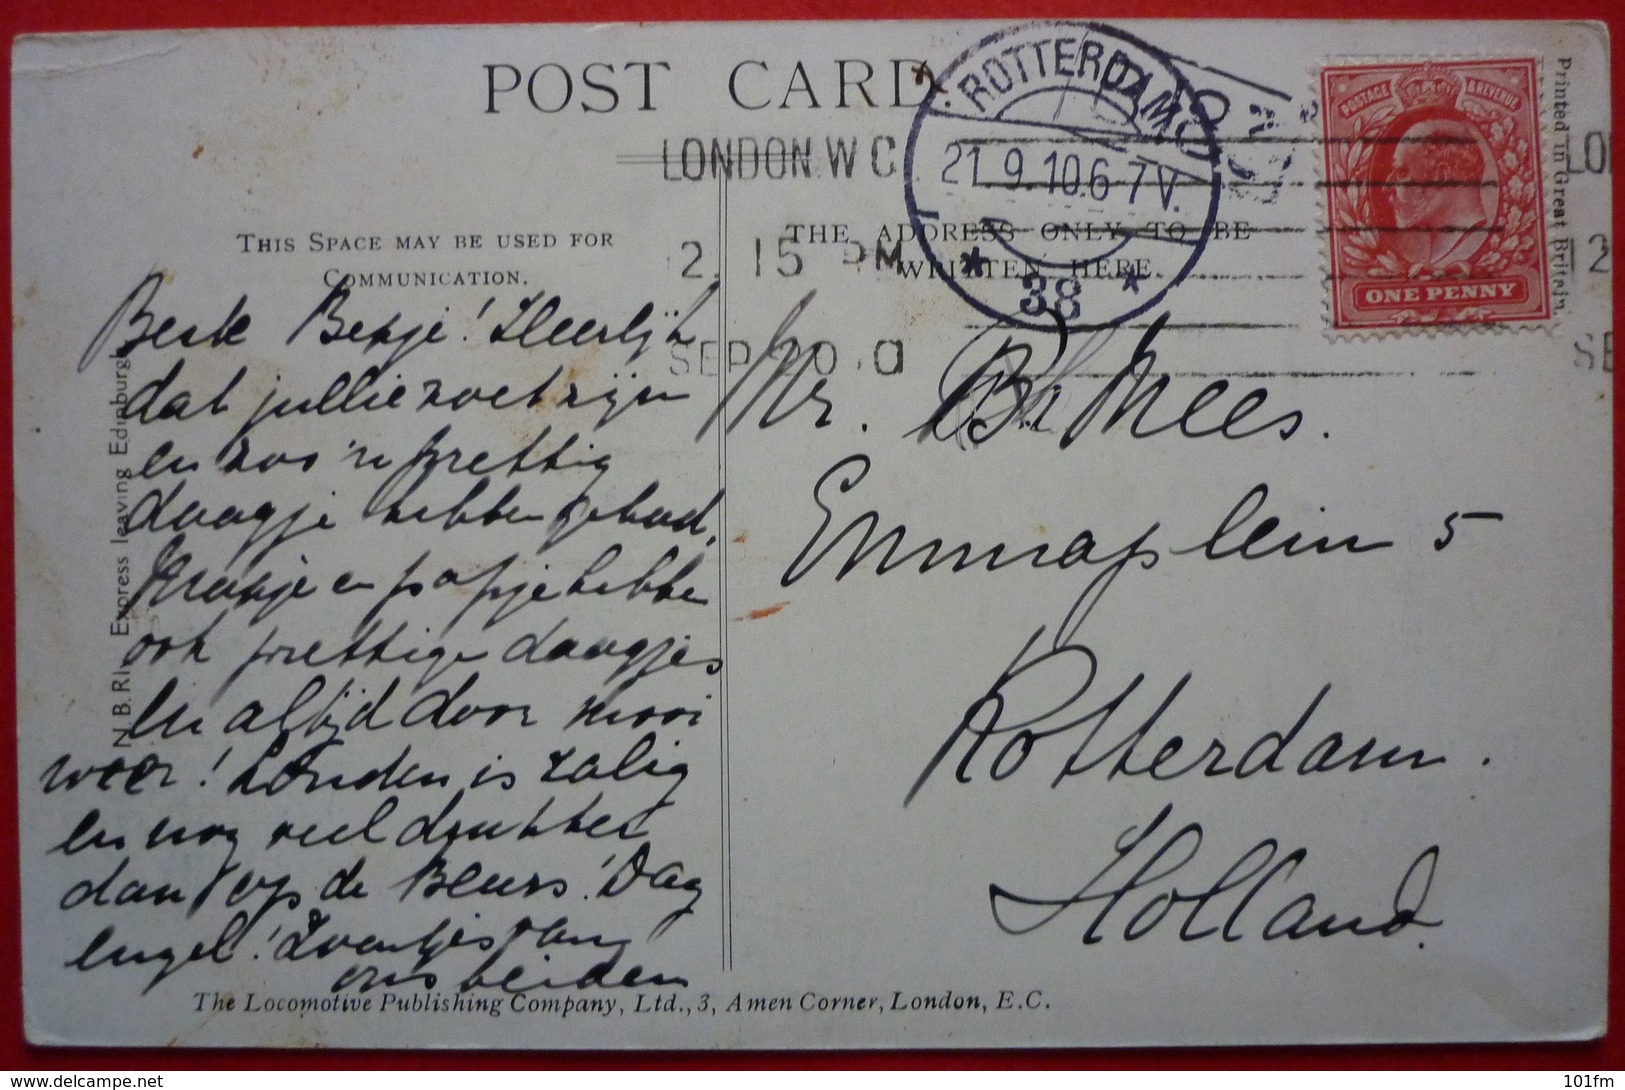 POST CARD
ROTTERDAM
21.9.10.6-7V.
* 38 *
LONDON.W C
2. 15 PM
SEP 20
POSTAGE & REVENUE
ONE PENNY
Printed in Great Britain.
THIS SPACE MAY BE USED FOR
COMMUNICATION.
THE ADDRESS ONLY TO BE
WRITTEN HERE.
Beste Bepje! Heerlijk
dat jullie zoet zijn
en zoo'n prettig
daagje hebben gehad.
en papje hebben
ook prettige daagjes
en altijd door mooi
weer! Londen is zalig
en nog veel drukker
dan op de Beurs! Dag
engel! Zoentjes van
ons beiden
Mr. Mees.
Emmaplein 5
Rotterdam.
Holland.
N.B.Rly. Express leaving Edinburgh
The Locomotive Publishing Company, Ltd., 3, Amen Corner, London, E.C.
101fm